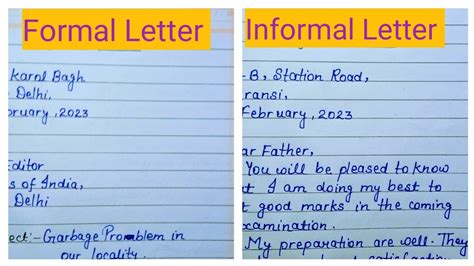 Formal Letter
karol Bagh
Delhi,
bruary, 2023
Editor
s of India,
Delhi
ect:- Garbage Problem in
our locality.
Informal Letter
-B, Station Road,
ransi,
February, 2023
ar Father,
You will be pleased to know
t I am doing my best to
t good marks in the coming
xamination.
My preparation are well. They